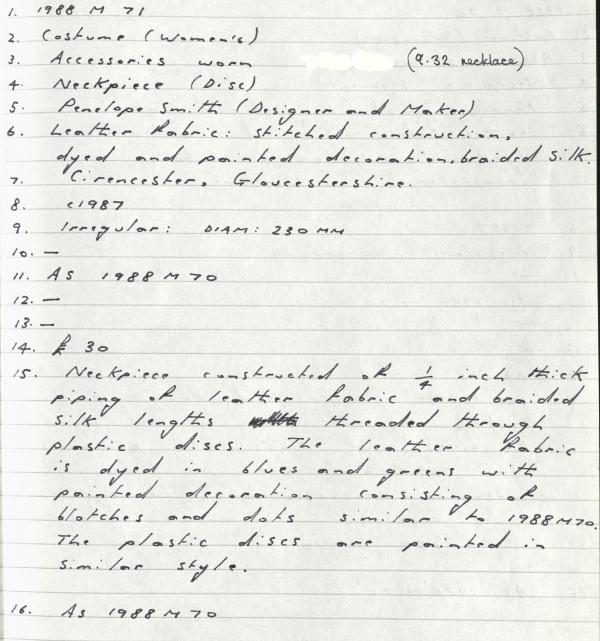 1. 1988 M 71
2. Costume (Women's)
3. Accessories worn (9.32 necklace)
4. Neckpiece (Disc)
5. Penelope Smith (Designer and Maker)
6. Leather Fabric: stitched construction,
dyed and painted decoration, braided silk.
7. Cirencester, Gloucestershire.
8. c1987
9. Irregular: DIAM: 230 MM
10. —
11. As 1988 M 70
12. —
13. —
14. £ 30
15. Neckpiece constructed of 1/4 inch thick
piping of leather fabric and braided
silk lengths threaded through
plastic discs. The leather fabric
is dyed in blues and greens with
painted decoration consisting of
blotches and dots similar to 1988 M 70.
The plastic discs are painted in
similar style.
16. As 1988 M 70